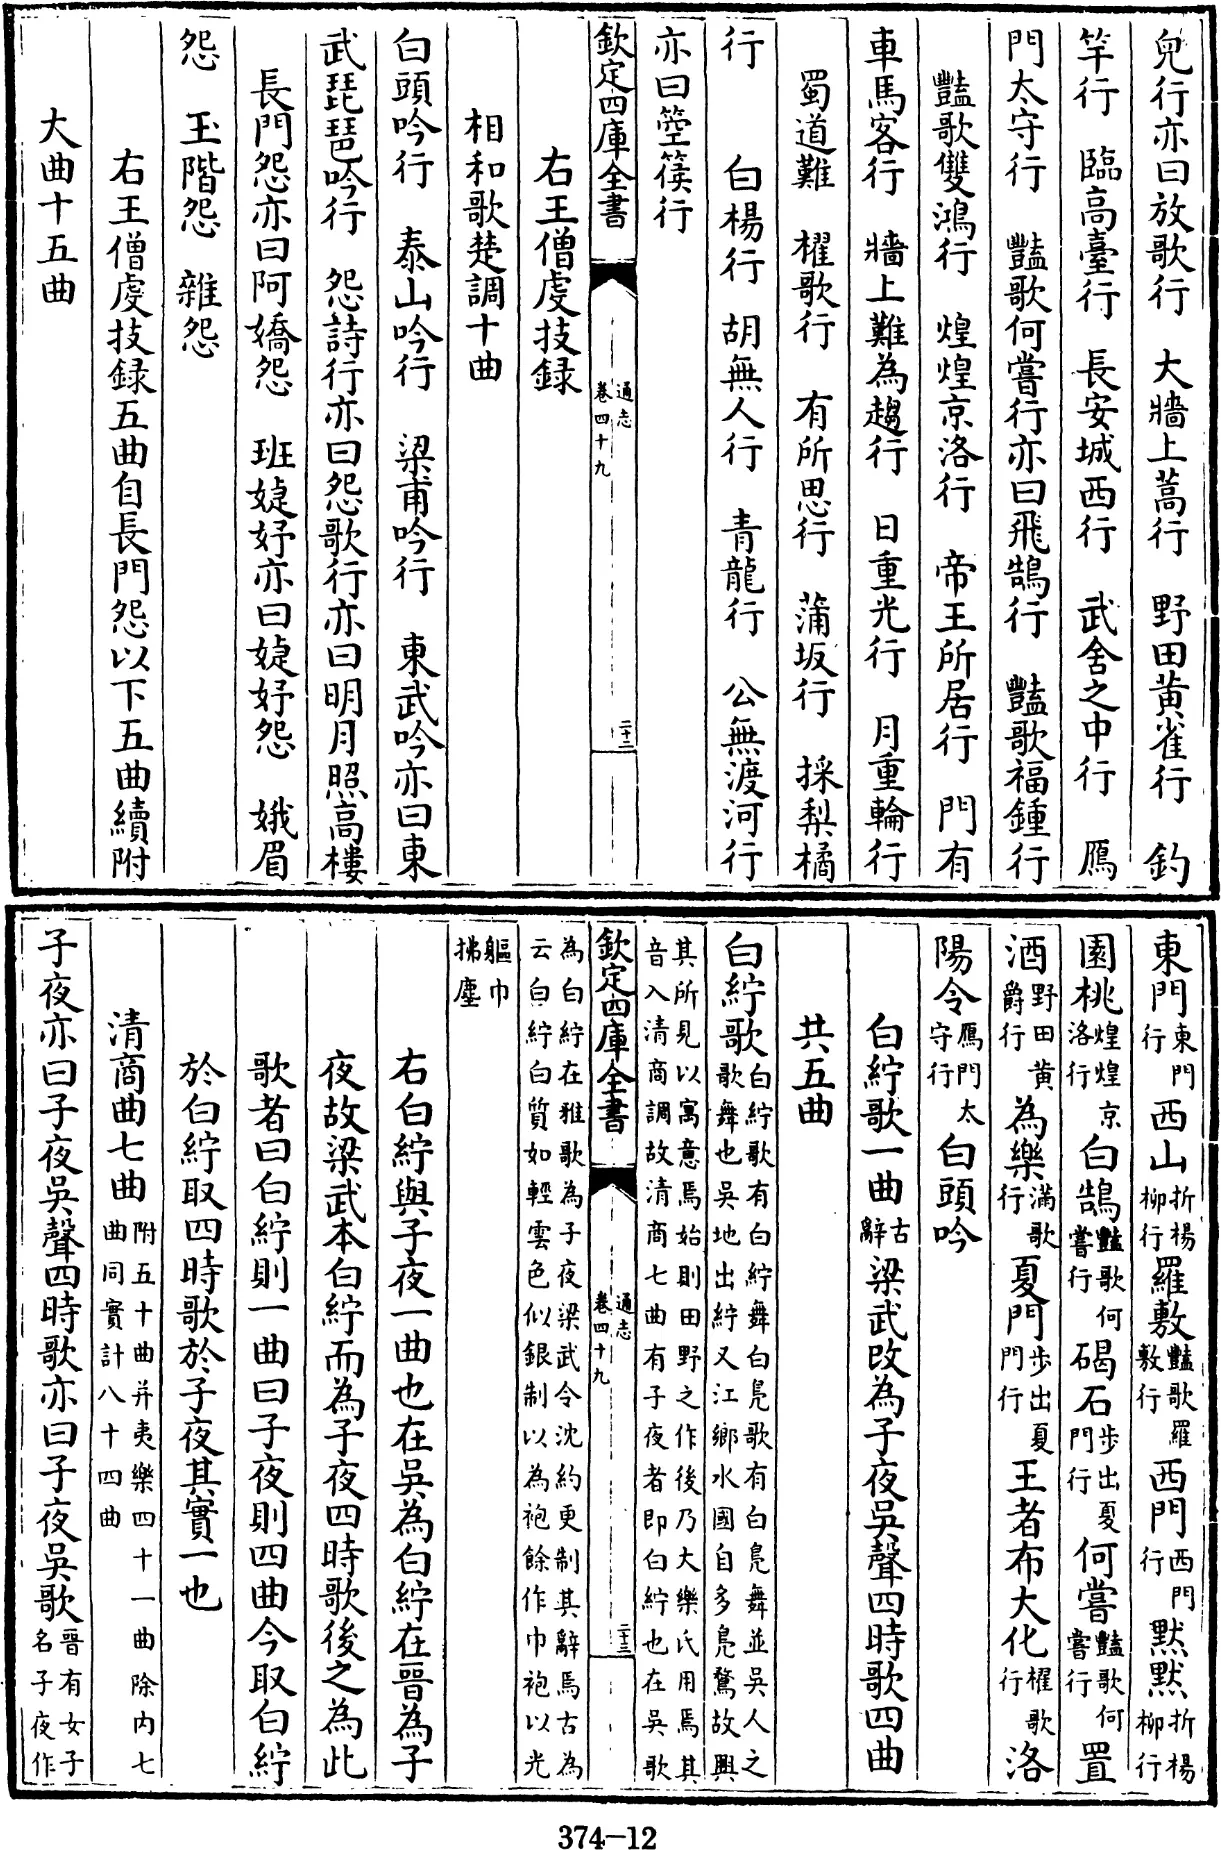 兜行亦曰放歌行　大牆上蒿行　野田黄雀行　釣
竿行　臨高臺行　長安城西行　武舍之中行　鴈
門太守行　豔歌何嘗行亦曰飛鵠行　豔歌福鍾行
豔歌雙鴻行　煌煌京洛行　帝王所居行　門有
車馬客行　牆上難為趨行　日重光行　月重輪行
蜀道難　櫂歌行　有所思行　蒲坂行　採梨橘
行　白楊行　胡無人行　青龍行　公無渡河行
亦曰箜篌行
欽定四庫全書　通志　卷四十九　二十二
右王僧虔技録
相和歌楚調十曲
白頭吟行　泰山吟行　梁甫吟行　東武吟亦曰東
武琵琶吟行　怨詩行亦曰怨歌行亦曰明月照高樓
長門怨亦曰阿嬌怨　班婕妤亦曰婕妤怨　娥眉
怨　玉階怨　雜怨
右王僧虔技録五曲自長門怨以下五曲續附
大曲十五曲
東門東門行　西山折楊柳行　羅敷豔歌羅敷行　西門西門行　默默折楊柳行
園桃煌煌京洛行　白鵠豔歌何嘗行　碣石步出夏門行　何嘗豔歌何嘗行　置
酒野田黄爵行　為樂滿歌行　夏門步出夏門行　王者布大化櫂歌行　洛
陽令鴈門太守行　白頭吟
白紵歌一曲古辭　梁武改為子夜吳聲四時歌四曲
共五曲
白紵歌白紵歌有白紵舞白鳧歌有白鳧舞並吳人之歌舞也吳地出紵又江鄉水國自多鳧鶩故興
其所見以寓意焉始則田野之作後乃大樂氏用焉其音入清商調故清商七曲有子夜者即白紵也在吳歌
欽定四庫全書　通志　卷四十九　二十三
為白紵在雅歌為子夜梁武令沈約更制其辭焉古為云白紵白質如輕雲色似銀制以為袍餘作巾袍以光
軀巾拂塵
右白紵與子夜一曲也在吳為白紵在晉為子
夜故梁武本白紵而為子夜四時歌後之為此
歌者曰白紵則一曲曰子夜則四曲今取白紵
於白紵取四時歌於子夜其實一也
清商曲七曲附五十曲并夷樂四十一曲除内七曲同實計八十四曲
子夜亦曰子夜吳聲四時歌亦曰子夜吳歌晉有女子名子夜作
374-12